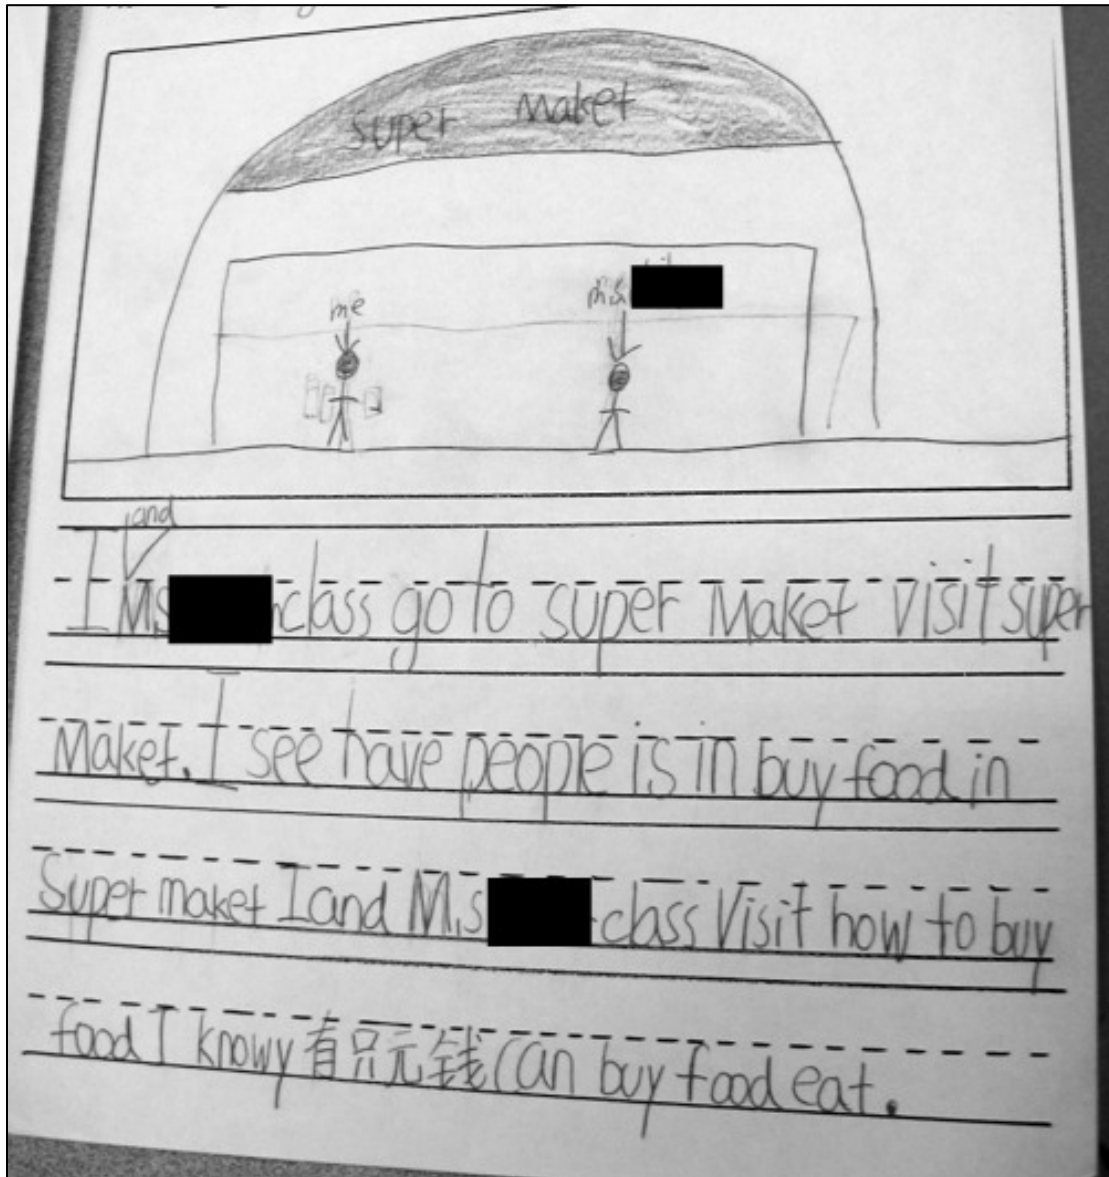 super maket
me
and
I Ms class go to super Maket visit super
Maket. I see have people is in buy food in
Super maket I and M.s class Visit how to buy
food I knowy 有只元钱 Can buy food eat.